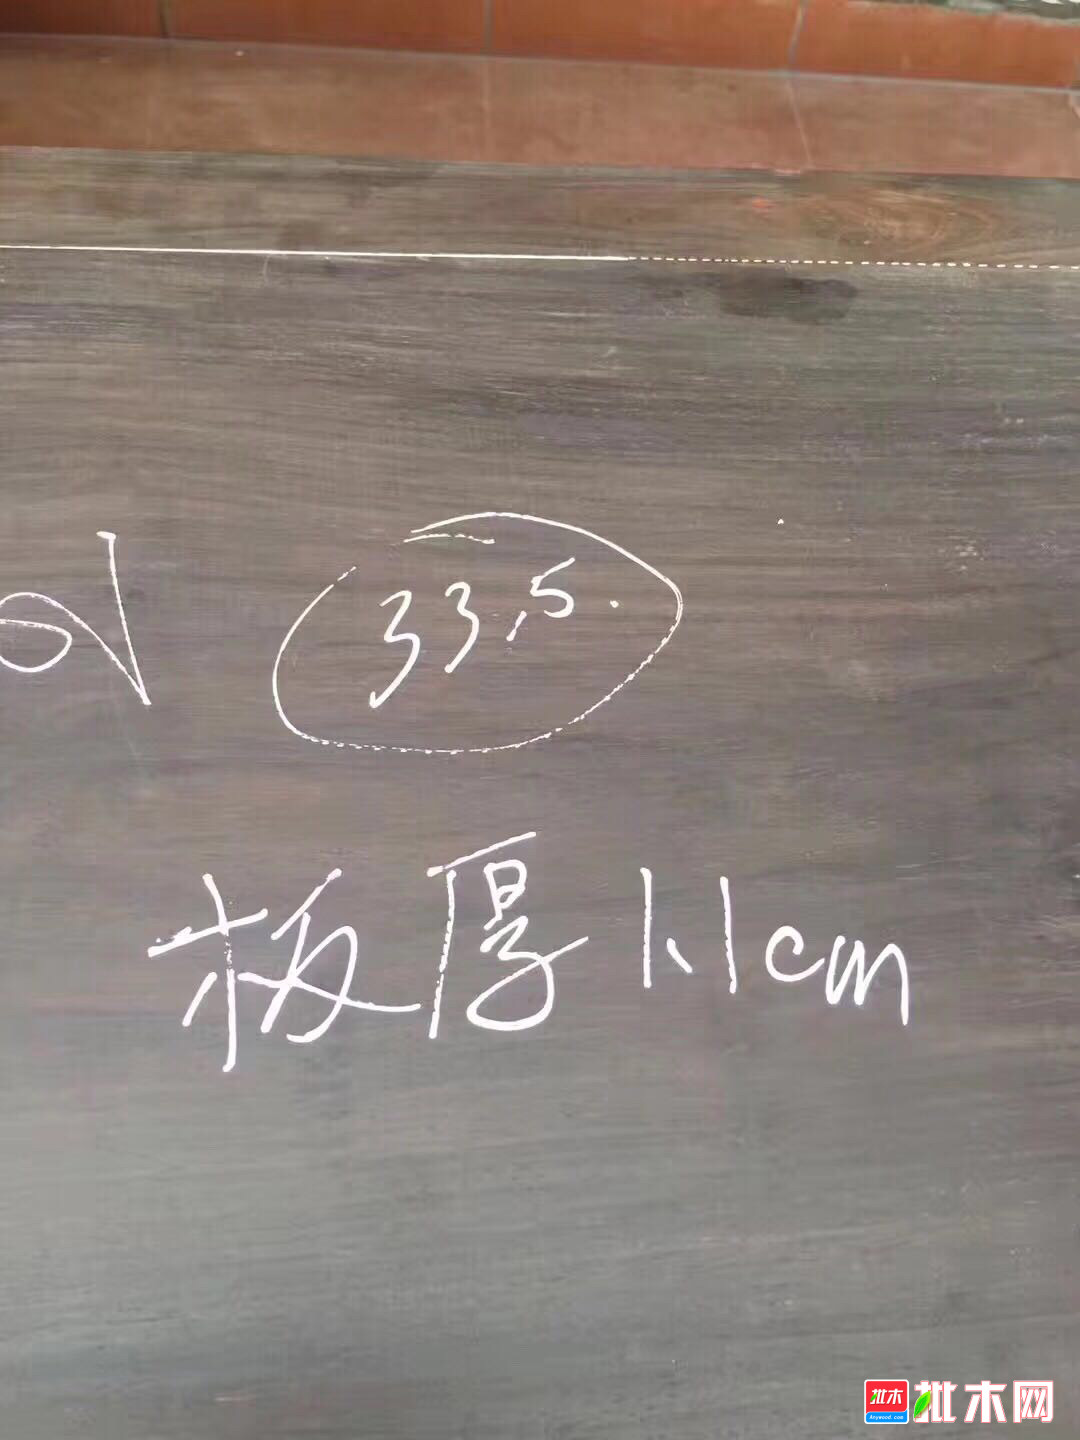 33.5.
板厚 1.1cm
批木
Anywood.com
批木网